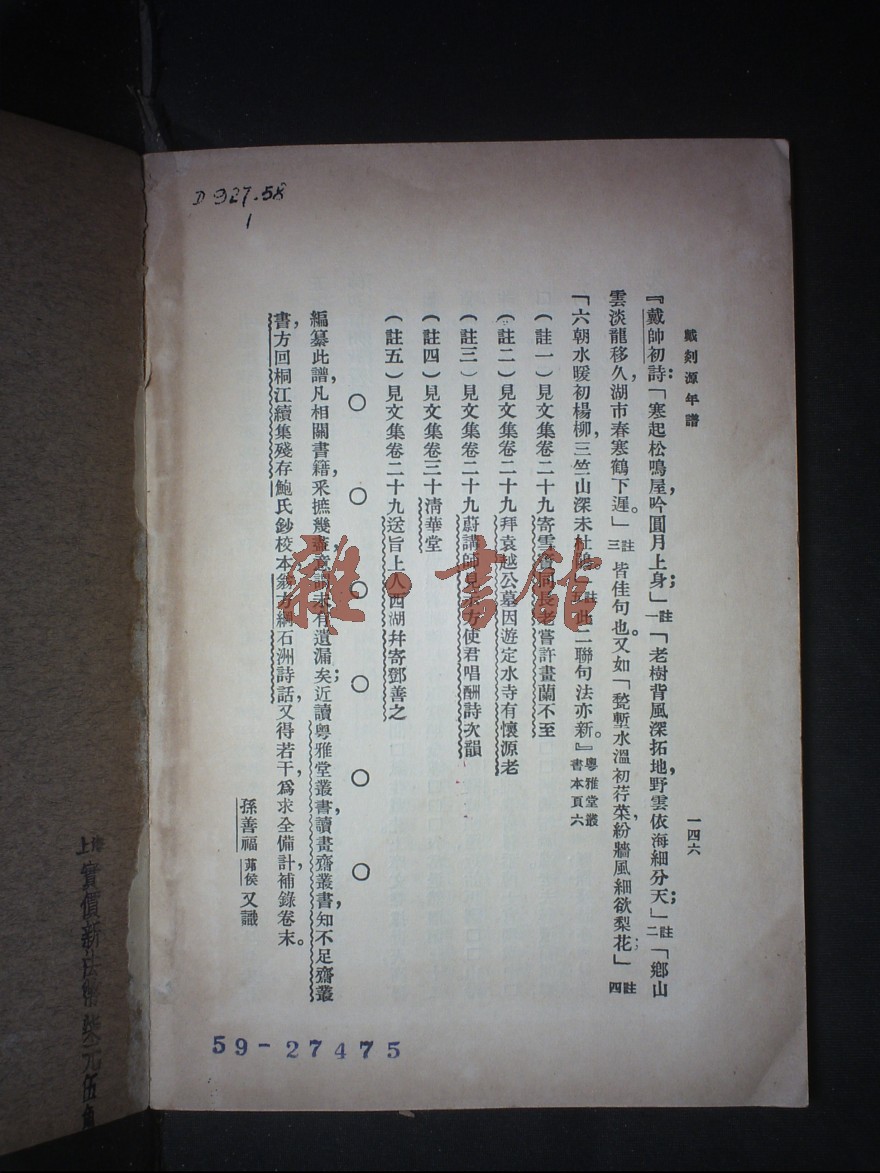 D 927.58
1
戴剡源年譜
一四六
『戴帥初詩：「寒起松鳴屋，吟圓月上身；」註一「老樹背風深拓地，野雲依海細分天；」註二「鄉山
雲淡龍移久，湖市春寒鶴下遲。」註三皆佳句也。又如「甃塹水溫初荇菜，紛牆風細欲梨花；」註四
「六朝水暖初楊柳，三竺山深未杜鵑」註五此二聯句法亦新。』粵雅堂叢書本頁六
（註一）見文集卷二十九寄雪竇同長老嘗許畫蘭不至
（註二）見文集卷二十九拜袁越公墓因遊定水寺有懷源老
（註三）見文集卷二十九蔚講師見示方使君唱酬詩次韻
（註四）見文集卷三十清華堂
（註五）見文集卷二十九送旨上人西湖幷寄鄧善之
○　○　○　○　○　○
編纂此譜，凡相關書籍，采摭幾盡，意謂未有遺漏矣；近讀粵雅堂叢書，讀畫齋叢書，知不足齋叢
書，方回桐江續集殘存鮑氏鈔校本，翁方綱石洲詩話，又得若干，爲求全備計，補錄卷末。
孫善福茀侯又識
59-27475
上海
實價新法幣柒元伍角
雜·書館